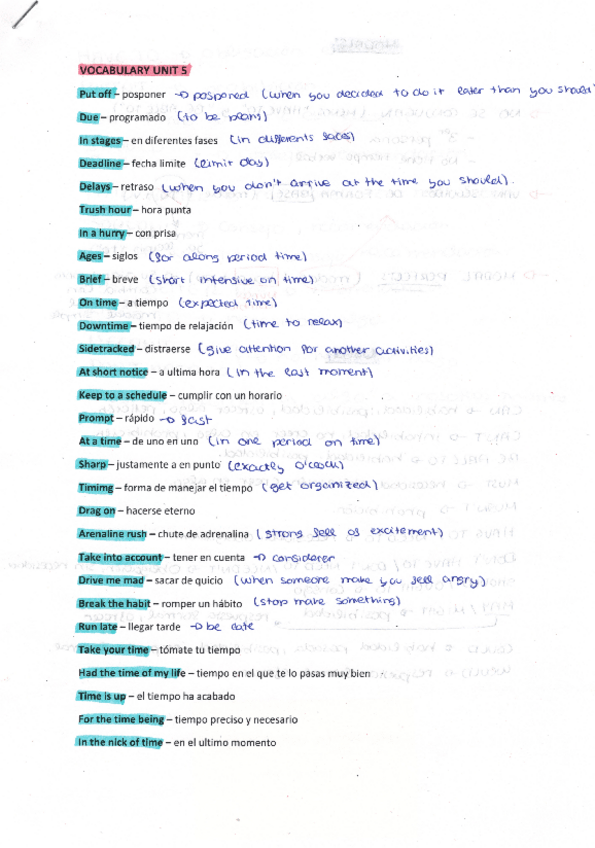 VOCABULARY UNIT 5
Put off – posponer → posponed (when you decided to do it later than you should
Due – programado (to be plans)
In stages – en diferentes fases (in differents fases)
Deadline – fecha limite (limit day)
Delays – retraso (when you don't arrive at the time you should).
Trush hour – hora punta
In a hurry – con prisa
Ages – siglos (for along period time)
Brief – breve (short intensive on time)
On time – a tiempo (expected time)
Downtime – tiempo de relajación (time to relax)
Sidetracked – distraerse (give attention for another activities)
At short notice – a ultima hora (in the last moment)
Keep to a schedule – cumplir con un horario
Prompt – rápido → fast
At a time – de uno en uno (in one period on time)
Sharp – justamente a en punto (exactly o'clock)
Timimg – forma de manejar el tiempo (get organized)
Drag on – hacerse eterno
Arenaline rush – chute de adrenalina (strong fell of excitement)
Take into account – tener en cuenta → considerer
Drive me mad – sacar de quicio (when someone make you fell angry)
Break the habit – romper un hábito (stop make something)
Run late – llegar tarde → be late
Take your time – tómate tu tiempo
Had the time of my life – tiempo en el que te lo pasas muy bien
Time is up – el tiempo ha acabado
For the time being – tiempo preciso y necesario
In the nick of time – en el ultimo momento